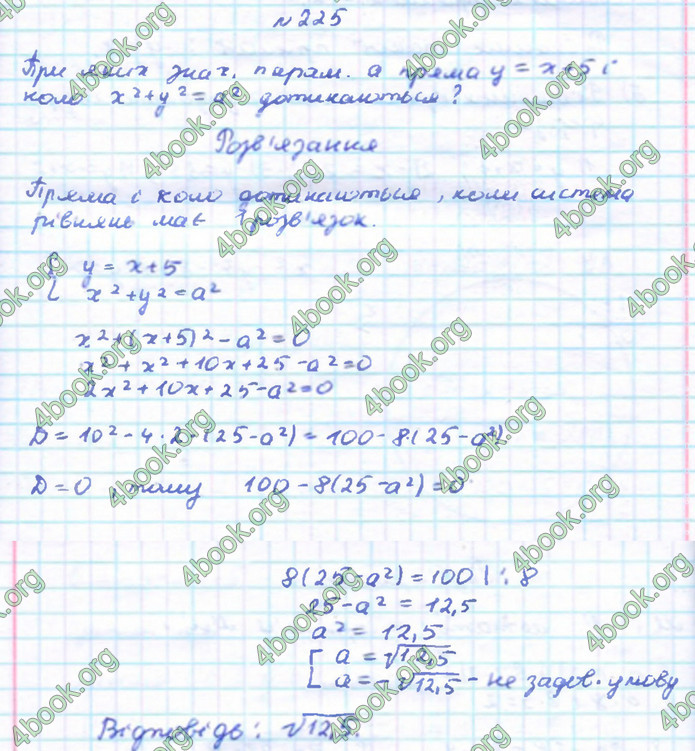 №225
При яких знач. парам. а пряма y = x+5 і
коло x²+y²=a² дотикаються?
Розв'язання
Пряма і коло дотикаються, коли система
рівнянь має 1 розв'язок.
{ y = x+5
x²+y²=a²
x²+(x+5)²-a²=0
x²+x²+10x+25-a²=0
2x²+10x+25-a²=0
D=10²-4·2·(25-a²)=100-8·(25-a²)
D=0, тому 100-8(25-a²)=0
8(25-a²)=100 | :8
25-a² = 12,5
a² = 12,5
[ a = √12,5
a = -√12,5 - не задов. умову
Відповідь: √12,5.
4book.org